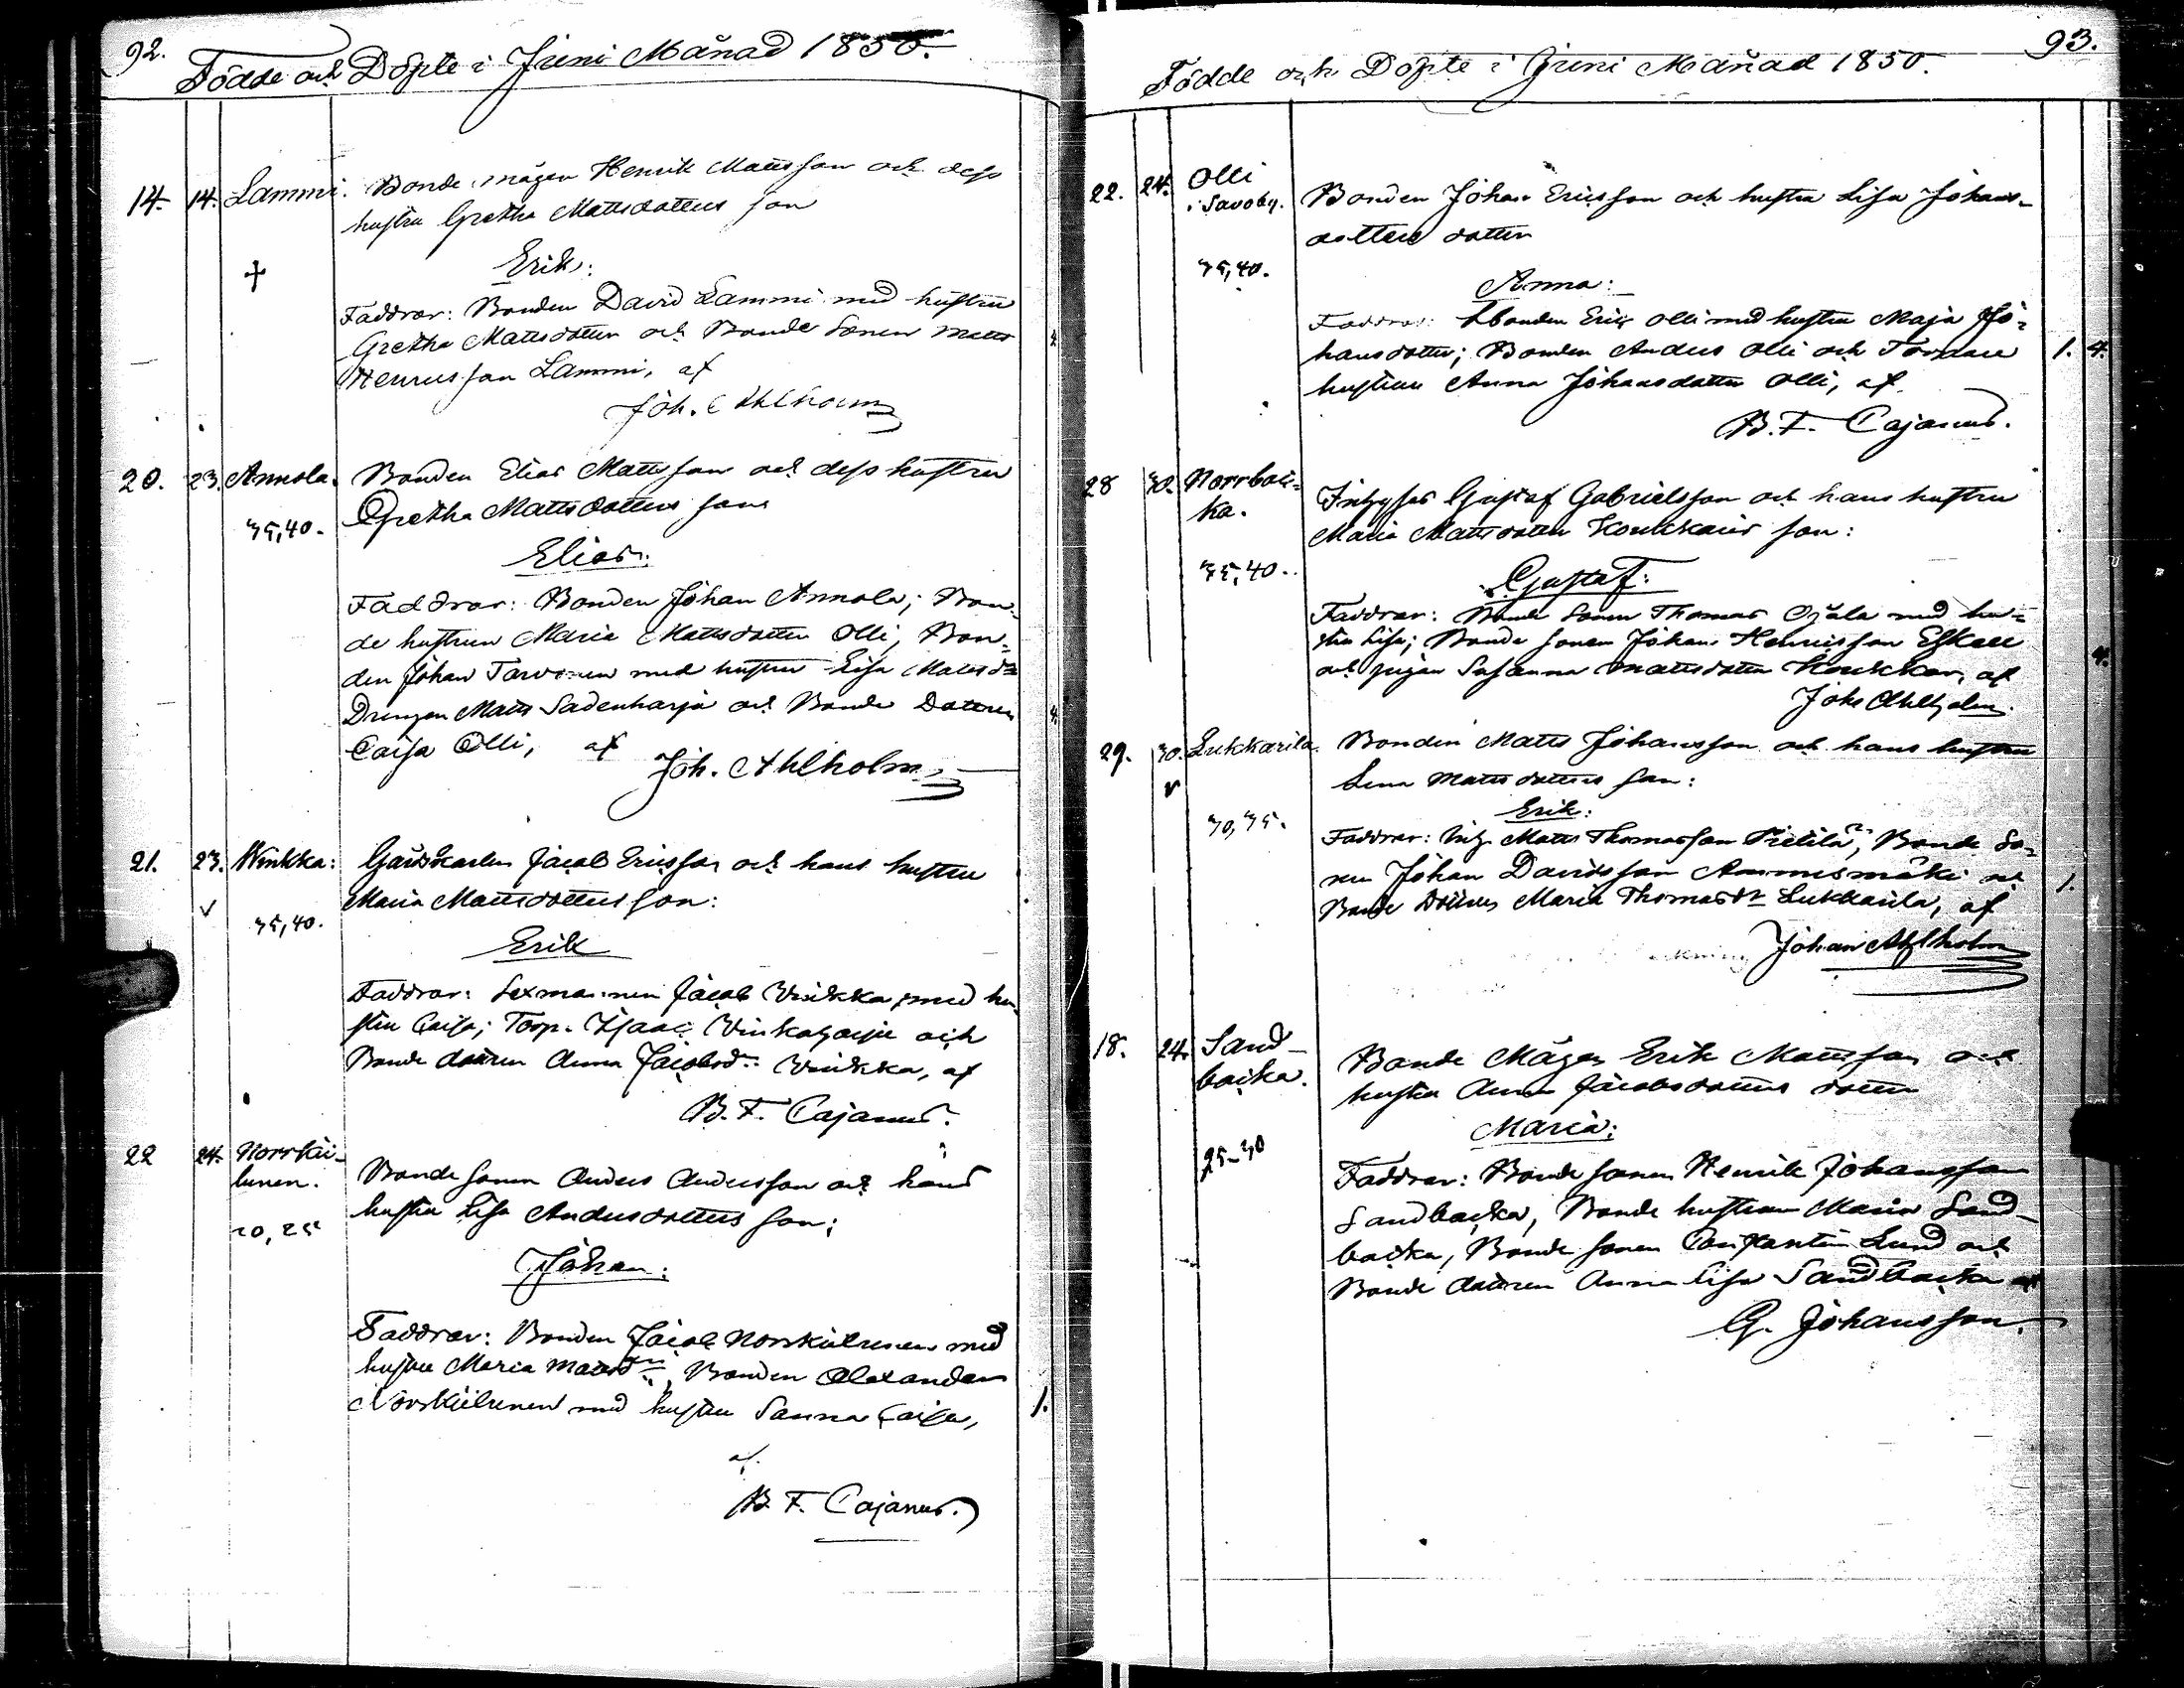 92.
Födde och Döpte i Juni Månad 1850.
14. 14. Lammi. Bonde mågen Henrik Mattsson och dess
hustru Gretha Mattsdotters son
Erik:
Faddrar: Bonden David Lammi med hustru
Gretha Mattsdotter och Bonde Sonen Matts
Henricsson Lammi, af
Joh. Ahlholm
20. 23. Annola. Bonden Elias Mattsson och dess hustru
Gretha Mattsdotters son
35,40.
Elias:
Faddrar: Bonden Johan Annola; Bon-
de hustrun Maria Mattsdotter Olli, Bon-
den Johan Tarvonen med hustru Lisa Mattsdr
Drengen Matts Sadenharju och Bonde Dottren
Caisa Olli, af
Joh. Ahlholm
21. 23. Winkka: Gårdskarlen Jacob Ericsson och hans hustru
Maria Mattsdotters son:
35,40.
Erik
Faddrar: Sexmannen Jacob Winkka med hu-
stru Caisa; Torp. Isaac och
Bonde dottren Anna Jacobsdr Winkka, af
B. F. Cajanus.
22 24. Norrkii-
lunen. Bonde sonen Anders Andersson och hans
hustru Lisa Andersdotters son;
20,25
Johan:
Faddrar: Bonden Jacob Norrkiilunen med
hustru Maria Mattsdr, Bonden Alexander
Norrkiilunen med hustru Sanna Caisa,
1.
af
B. F. Cajanus.
93.
Födde och Döpte i Juni Månad 1850.
22. 24. Olli
i Savoby. Bonden Johan Ericsson och hustru Lisa Johans-
dotters dotter
35,40.
Anna:
Faddrar: bonden Eric Olli med hustru Maja Jo-
hansdotter; Bonden Anders Olli och
hustrun Anna Johansdotter Olli, af
1. 4.
B. F. Cajanus.
28 30. Norrbac-
ka. Gustaf Gabrielsson och hans hustru
Maria Mattsdotter son:
35,40.
Gustaf:
Faddrar: Bonde Sonen Thomas Ojala med hu-
stru Lisa; Bonde sonen Johan Henricsson
och pigan Susanna Mattsdotter af
4.
Joh. Ahlholm.
29. 30. Lukkarila. Bonden Matts Johansson och hans hustru
Lena Mattsdotters son:
Erik:
30,35.
Faddrar: Matts Thomasson Pietilä, Bonde So-
nen Johan Davidsson Ammesmäki och
Bonde Dottren Maria Thomasdr Lukkarila, af
1.
Johan Ahlholm
18. 24. Sand-
backa. Bonde Mågen Erik Mattsson och
hustru Anna Jacobsdotters dotter
Maria:
25-30
Faddrar: Bonde sonen Henrik Johansson
Sandbacka, Bonde hustrun Maria Sand-
backa, Bonde sonen Constantin Lund och
Bonde dottren Anna Lisa Sandbacka af
G. Johansson.